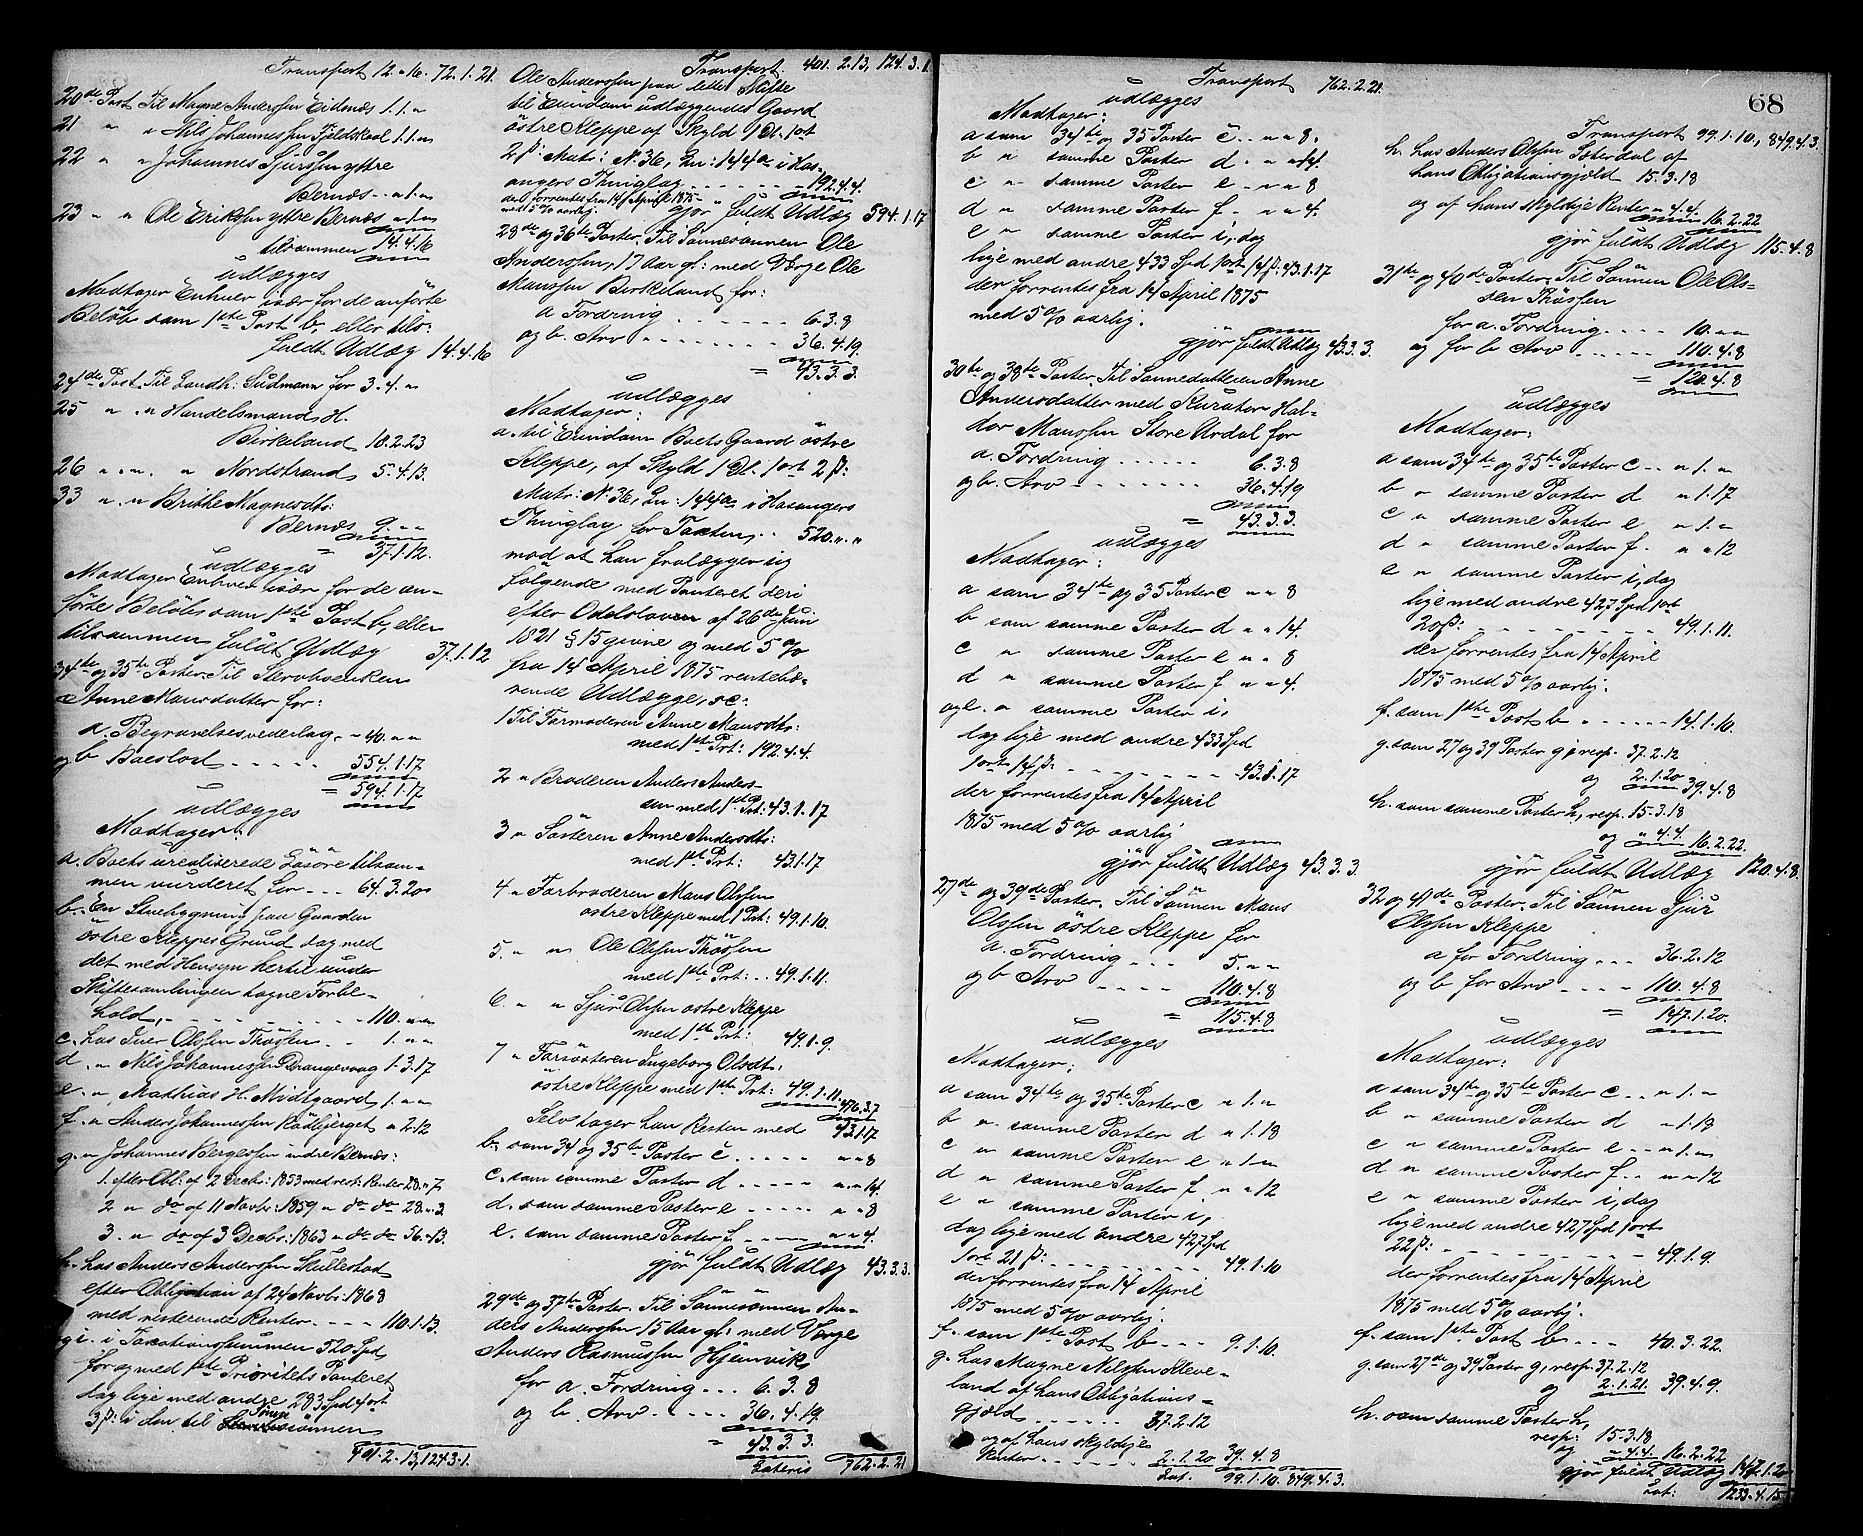 Transport 12.-16. 72.1.21.
20de Post Til Magne Anderssen Eidsnæs 1.1.„
21 „ „ Nils Johannessen Fjeldskaal 1.1.„
22 „ „ Johannes Sjurssen yttre
Bernæs „.1.„
23 „ „ Ole Erikssen yttre Bernæs „.1.„
tilsammen 14.4.16
udlægges
Modtager Enhver især for de anførte
Beløb som 1ste Post b, eller tils:
fuldt Udlæg 14.4.16
24de Post Til Landh: Sudmann for 3.4.„
25 „ „ Handelsmand H.
Birkeland 18.2.23
26 „ „ „ Nordstrand 5.4.13.
33 „ „ Brithe Magnesdtr:
Bernæs 9.„.„
= 37.1.12.
udlægges
Modtager Enhver især for de an-
førte Beløb som 1ste Post b, eller
tilsammen fuldt Udlæg 37.1.12
34de og 35te Poster. Til Stervboenken
Anne Mansdatter for:
a. Begravelsesvederlag 40.„.„
og b Boeslod 554.1.17
= 594.1.17
udlægges
Modtager
a. Boets urealiserede Løsøre tilsam-
men vurderet for 64.3.20
b. En Stuebygning paa Gaarden
østre Kleppes Grund dog med
det med Hensyn hertil under
Skiftesamlingen tagne Forbe-
hold, 110.„.„
c. hos Iver Olssen Thøssen 1.„.„
d. „ Nils Johannessen Drangevaag 1.3.17
e. „ Mathias H. Midtgaard 1.„.„
f. „ Anders Johannessen Rødbjerget „.2.12
g. „ Johannes Bergessen indre Bernæs:
1. efter Obl: af 2 Decbr: 1853 med rest: Renter 28.„.7
2 „ do af 11 Novbr: 1859 „ do do 28.„.2
3. „ do af 3 Decbr: 1863 „ do do 56.„.13.
h. hos Anders Anderssen Skillestad
efter Obligation af 24 Novbr: 1868
med resterende Renter 110.1.13.
og i. i Taxationssummen 520 Spd
for og med 1ste Prioritets Panteret
dog lige med andre 283 Spd 4 ort
3 ß: i den til Sønnesønnen
401.2.13, 124.3.1.
Transport 401.2.13, 124.3.1
Ole Anderssen paa dette Skifte
til Eiendom udlæggendes Gaard
østre Kleppe af Skyld 1 Dl. 1 ort
2 ß: Matr: N. 36, Ln: 144a i Hos-
angers Thinglag 192.4.4.
der forrentes fra 14 April 1875
med 5% aarlig. gjør fuldt Udlæg 594.1.17
28de og 36te Poster. Til Sønnesønnen Ole
Anderssen, 17 Aar gl: med Værge Ole
Monssen Birkeland for:
a Fordring 6.3.8
og b. Arv 36.4.19.
= 43.3.3.
udlægges
Modtager:
a. til Eiendom Boets Gaard østre
Kleppe, af Skyld 1 Dl. 1 ort 2 ß:
Matr: N. 36, Ln: 144a i Hosangers
Thinglag for Taxten 520.„.„
mod at han fralægger sig
følgende med Panteret deri
efter Odelsloven af 26de Juni
1821 § 15 givne og med 5%
fra 14 April 1875 rentebæ-
rende Udlægge, sc:
1 Til Farmoderen Anne Mansdtr:
med 1ste Prt: 192.4.4.
2 „ Broderen Anders Anders-
sen med 1ste Prt: 43.1.17
3 „ Søsteren Anne Andersdtr:
med 1ste Prt: 43.1.17
4 „ Farbroderen Mans Olssen
østre Kleppe med 1 Prt: 49.1.10.
5. „ „ Ole Olssen Thøssen
med 1ste Prt: 49.1.11.
6 „ „ Sjur Olssen østre Kleppe
med 1ste Prt: 49.1.9.
7 „ Farsøsteren Ingeborg Olsdtr:
østre Kleppe med 1ste Prt: 49.1.11.
476.3.7
Selv tager han Resten med 43.1.17
b. som 34 og 35te Poster c „.„.8
c. som samme Poster d „.„.14.
d. som samme Poster e „.„.8
e. som samme Poster f „.„.4.
gjør fuldt Udlæg 43.3.3.
29de og 37te Poster. Til Sønnesønnen An-
ders Anderssen 15 Aar gl: med Værge
Anders Rasmussen Hjemvik
for a. Fordring 6.3.8
og b. Arv 36.4.19.
= 43.3.3.
Lateris 762.2.21
Transport 762.2.21.
udlægges
Modtager:
a som 34te og 35 Poster c „.„.8.
b „ samme Poster d „.„.14.
c „ samme Poster e „.„.8
d „ samme Poster f „.„.4.
e „ samme Poster i, dog
lige med andre 433 Spd 1 ort 14 ß: 43.1.17
der forrentes fra 14 April 1875
med 5% aarlig.
gjør fuldt Udlæg 43.3.3.
30te og 38te Poster. Til Sønnedatteren Anne
Andersdatter med Kurator Hal-
dor Monssen Store Urdal for
a. Fordring 6.3.8
og b. Arv 36.4.19
= 43.3.3.
udlægges
Modtager:
a som 34te og 35 Poster c „ „ 8
b som samme Poster d „ „ 14.
c „ samme Poster e „ „ 8
d „ samme Poster f „ „ 4.
og e. „ samme Poster i,
dog lige med andre 433 Spd
1 ort 14 ß. 43.1.17
der forrentes fra 14 April
1875 med 5% aarlig
gjør fuldt Udlæg 43.3.3.
27de og 39de Poster. Til Sønnen Mans
Olssen østre Kleppe for
a. Fordring 5.„.„
og b Arv 110.4.8
= 115.4.8
udlægges
Modtager:
a som 34te og 35te Poster c „.1.„
b „ samme Poster d „.1.18
c „ samme Poster e „.1.„
d „ samme Poster f „.„.12
e „ samme Poster i,
dog lige med andre 427 Spd
1 ort 21 ß: 49.1.10
der forrentes fra 14 April
1875 med 5% aarlig.
f. som 1ste Post b 9.1.10.
g. hos Magne Nilssen Kleve-
land af hans Obligations-
gjæld 37.2.12
og af hans skyldige
Renter 2.1.20 39.4.8
Lat: 99.1.10. 849.4.3.
68
Transport 99.1.10, 849.4.3.
h. hos Anders Olssen Sæterdal af
hans Obligationsgjæld 15.3.18
og af hans skyldige Renter „.4.4. 16.2.22
gjør fuldt Udlæg 115.4.8
31te og 40de Poster. Til Sønnen Ole Ols-
sen Thøssen
for a. Fordring 10.„.„
og for b Arv 110.4.8
= 120.4.8
udlægges
Modtager:
a som 34te og 35te Poster c „.1.„
b „ samme Poster d „.1.17
c „ samme Poster e „.1.„
d „ samme Poster f „.„.12
e „ samme Poster i, dog
lige med andre 427 Spd 1 ort
20 ß: 49.1.11.
der forrentes fra 14 April
1875 med 5% aarlig.
f. som 1ste Post b 14.1.10.
g. som 27 og 39 Poster g, resp. 37.2.12
og 2.1.20 39.4.8
h. som samme Poster h, resp. 15.3.18
og „.4.4. 16.2.22.
gjør fuldt Udlæg 120.4.8.
32 og 41de Poster. Til Sønnen Sjur
Olssen Kleppe
a for Fordring 36.2.12
og b for Arv 110.4.8
= 147.1.20.
udlægges
Modtager:
a som 34te og 35te Poster c „.1.„
b „ samme Poster d „.1.18
c „ samme Poster e „.1.„
d „ samme Poster f „.„.12
e „ samme Poster i, dog
lige med andre 427 Spd 1 ort
22 ß: 49.1.9.
der forrentes fra 14 April
1875 med 5% aarlig.
f. som 1ste Post b 40.3.22.
g. som 27de og 39 Poster g, resp. 37.2.12
og 2.1.21. 39.4.9.
h. som samme Poster h,
resp: 15.3.18
og „.4.4. 16.2.22
gjør fuldt Udlæg 147.1.20
Lat: 1233.4.15